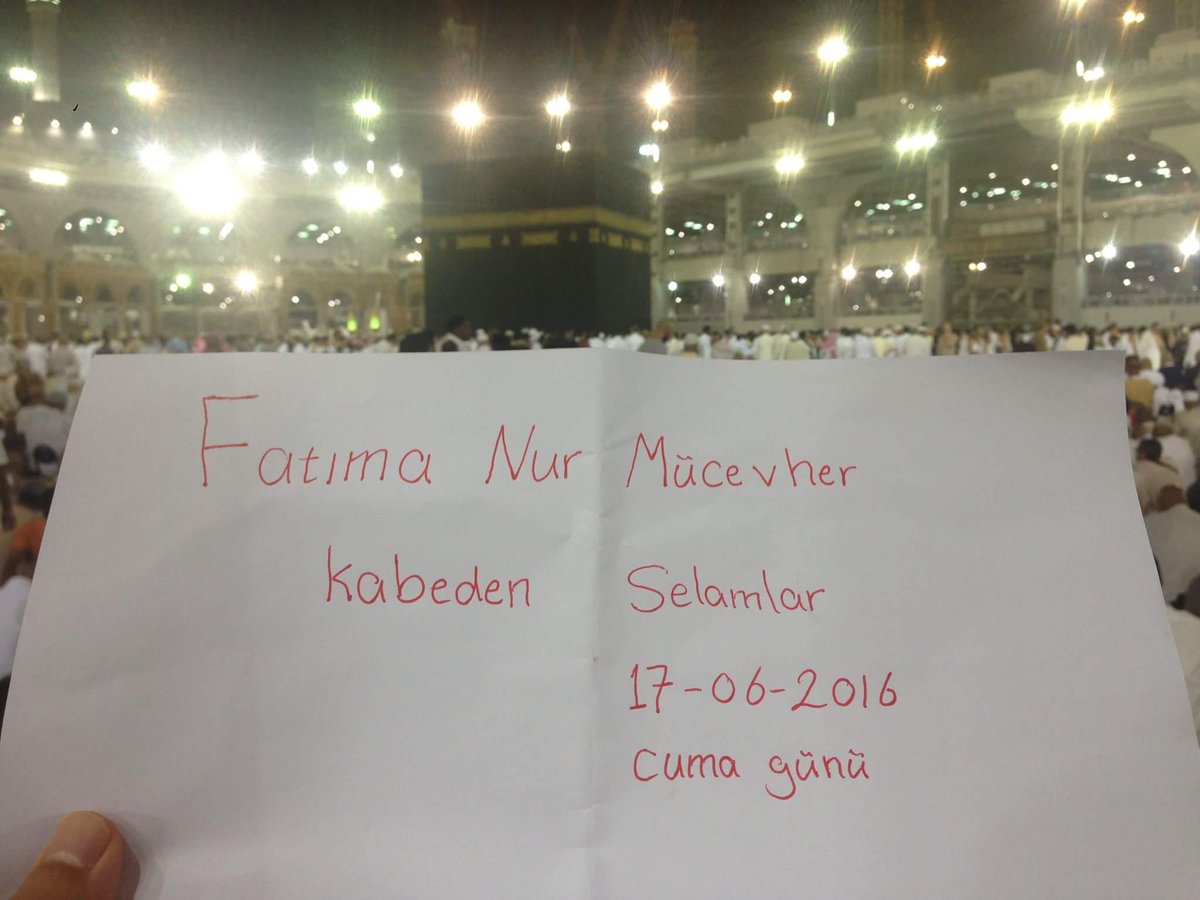 Fatıma Nur Mücevher
kabeden Selamlar
17-06-2016
cuma günü